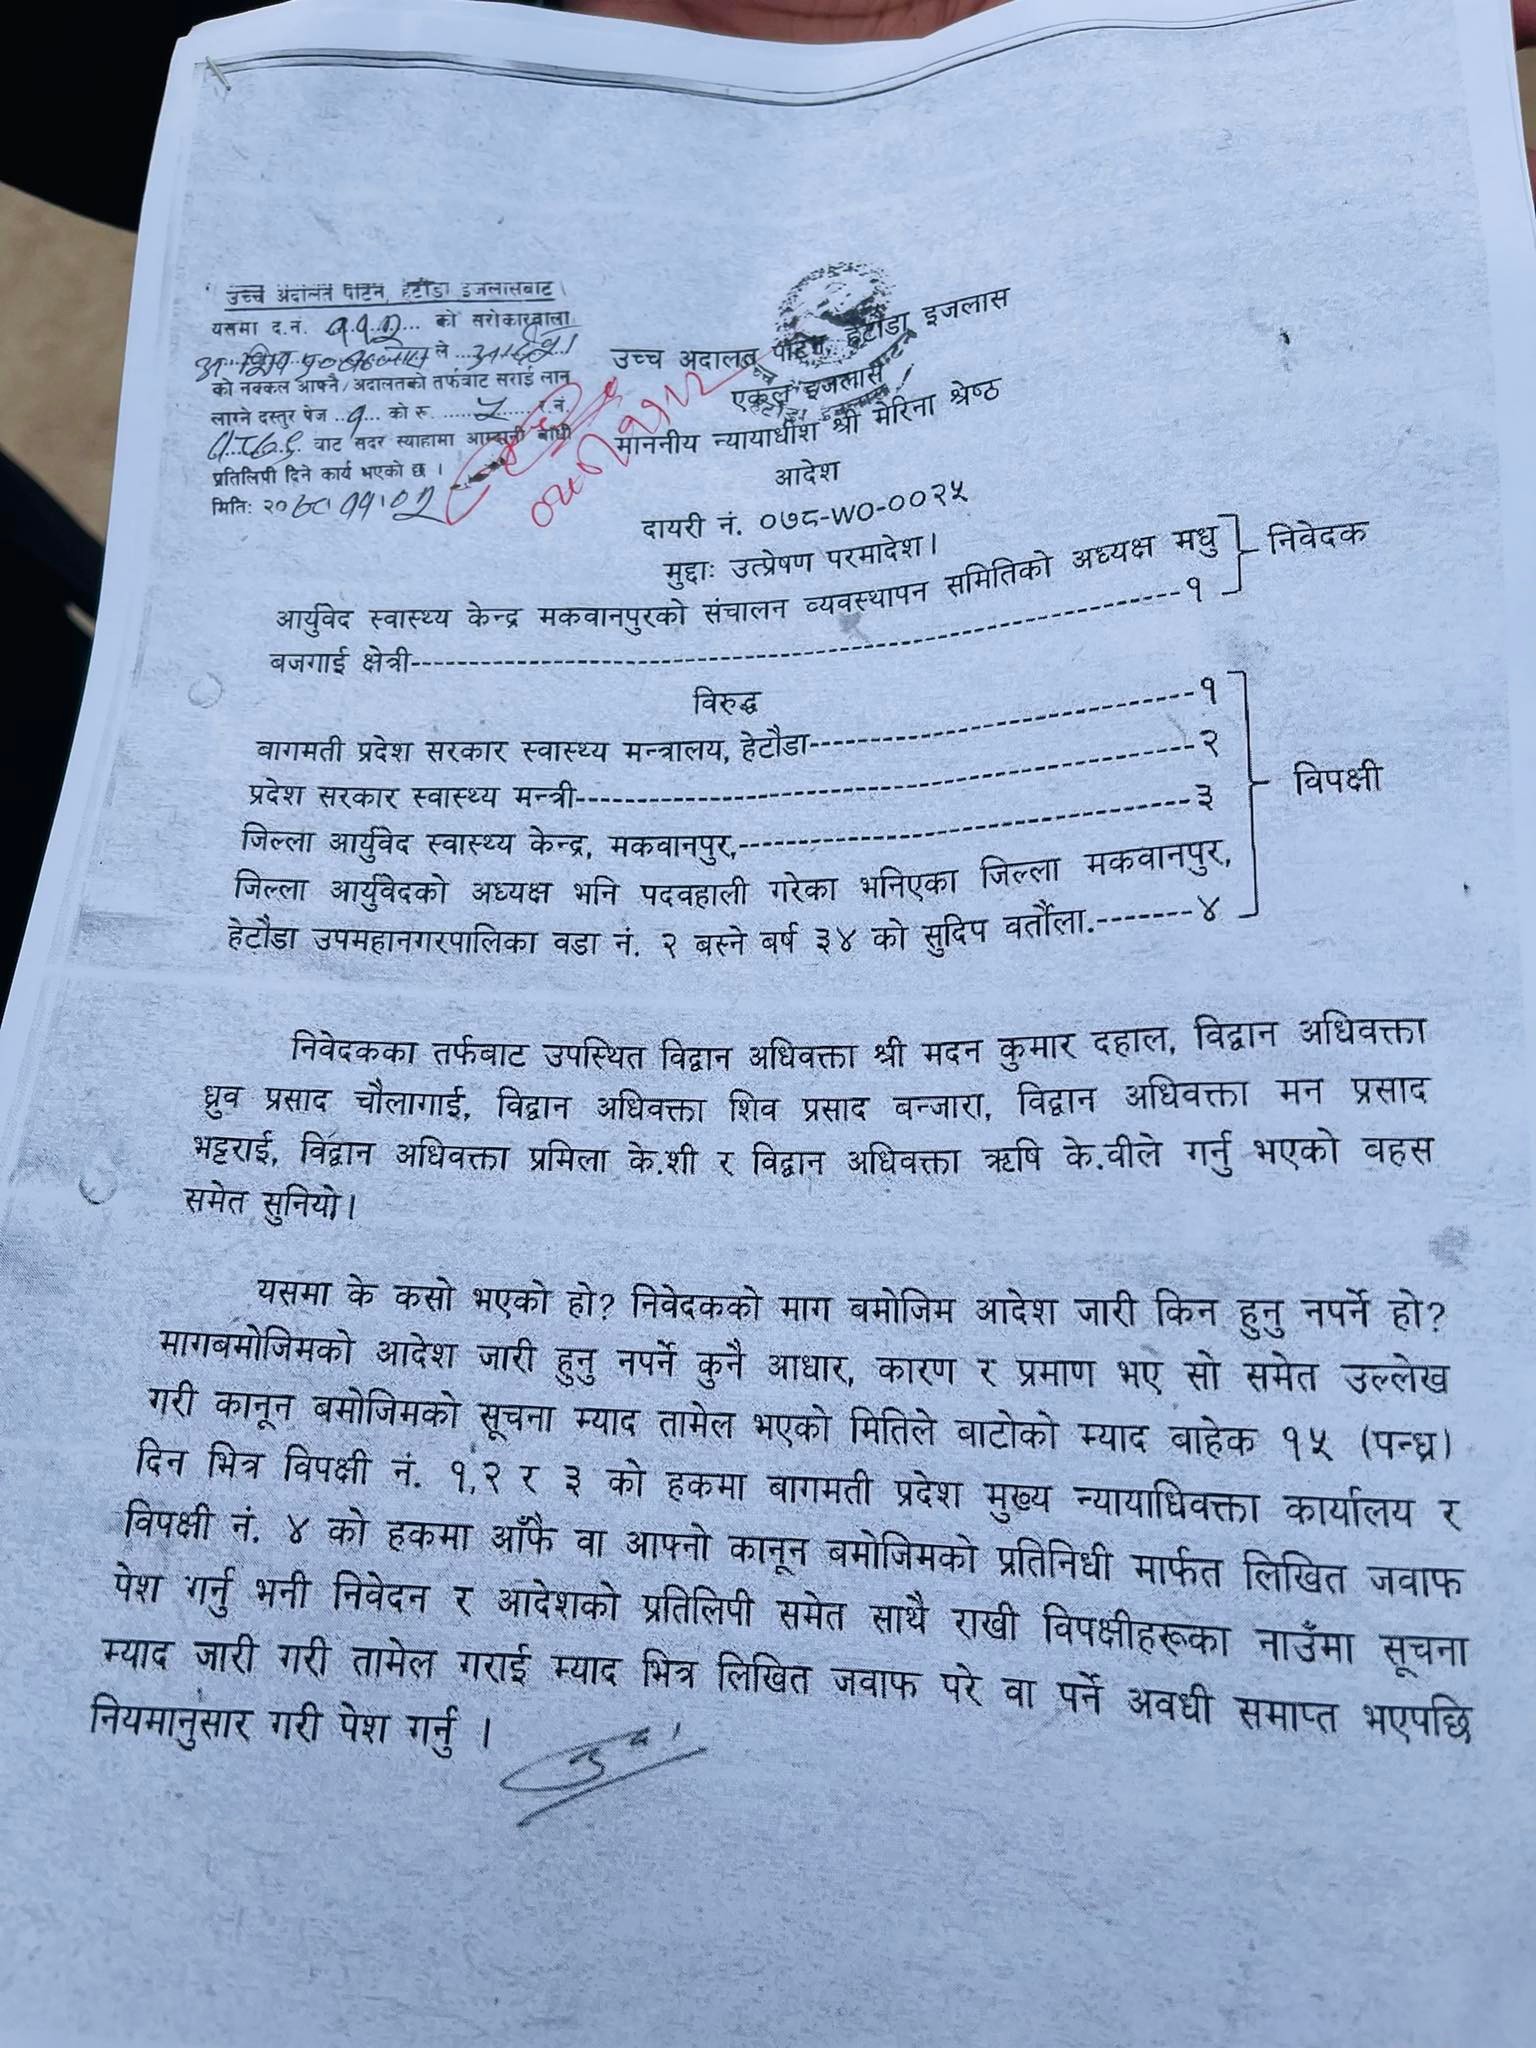 उच्च अदालत पाटन, हेटौंडा इजलासबाट
यसमा द.नं. ११२ को सरोकारवाला
ले
को नक्कल आफ्नै/अदालतको तर्फबाट सराई लान
लाग्ने दस्तुर पेज १ को रु. र.नं.
बाट सदर स्याहामा आम्दानी बाँधी
प्रतिलिपी दिने कार्य भएको छ ।
मिति: २०
उच्च अदालत पाटन, हेटौंडा इजलास
एकल इजलास
माननीय न्यायाधीश श्री मेरिना श्रेष्ठ
आदेश
दायरी नं. ०७८-WO-००२५
मुद्दाः उत्प्रेषण परमादेश।
आर्युवेद स्वास्थ्य केन्द्र मकवानपुरको संचालन व्यवस्थापन समितिको अध्यक्ष मधु
बजगाई क्षेत्री------------------------१ निवेदक
विरुद्ध
बागमती प्रदेश सरकार स्वास्थ्य मन्त्रालय, हेटौडा------------------------१
प्रदेश सरकार स्वास्थ्य मन्त्री------------------------२
जिल्ला आर्युवेद स्वास्थ्य केन्द्र, मकवानपुर,------------------------३ विपक्षी
जिल्ला आर्युवेदको अध्यक्ष भनि पदवहाली गरेका भनिएका जिल्ला मकवानपुर,
हेटौडा उपमहानगरपालिका वडा नं. २ बस्ने बर्ष ३४ को सुदिप वर्तौला.-------४
निवेदकका तर्फबाट उपस्थित विद्वान अधिवक्ता श्री मदन कुमार दहाल, विद्वान अधिवक्ता
ध्रुव प्रसाद चौलागाई, विद्वान अधिवक्ता शिव प्रसाद बन्जारा, विद्वान अधिवक्ता मन प्रसाद
भट्टराई, विद्वान अधिवक्ता प्रमिला के.शी र विद्वान अधिवक्ता ऋषि के.वीले गर्नु भएको वहस
समेत सुनियो।
यसमा के कसो भएको हो? निवेदकको माग बमोजिम आदेश जारी किन हुनु नपर्ने हो?
मागबमोजिमको आदेश जारी हुनु नपर्ने कुनै आधार, कारण र प्रमाण भए सो समेत उल्लेख
गरी कानून बमोजिमको सूचना म्याद तामेल भएको मितिले बाटोको म्याद बाहेक १५ (पन्ध्र)
दिन भित्र विपक्षी नं. १,२ र ३ को हकमा बागमती प्रदेश मुख्य न्यायाधिवक्ता कार्यालय र
विपक्षी नं. ४ को हकमा आँफै वा आफ्नो कानून बमोजिमको प्रतिनिधी मार्फत लिखित जवाफ
पेश गर्नु भनी निवेदन र आदेशको प्रतिलिपी समेत साथै राखी विपक्षीहरूका नाउँमा सूचना
म्याद जारी गरी तामेल गराई म्याद भित्र लिखित जवाफ परे वा पर्ने अवधी समाप्त भएपछि
नियमानुसार गरी पेश गर्नु ।